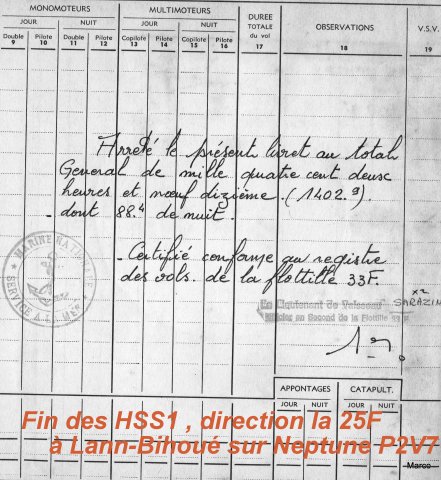 MONOMOTEURS MULTIMOTEURS DURÉE TOTALE du vol OBSERVATIONS V.S.V.
JOUR NUIT JOUR NUIT
Double Pilote Double Pilote Copilote Pilote Copilote Pilote
9 10 11 12 13 14 15 16 17 18 19
Arrêté le présent livret au total
General de mille quatre cent deux
heures et nœuf dizième. (1402.9).
- dont 88.4 de nuit.
- Certifié conforme au registre
des vols. de la flottille 33F.
MARINE NATIONALE
SERVICE A LA MER
Le Lieutenant de Vaisseau SARAZIN
Officier en Second de la Flottille 33 F
APPONTAGES CATAPULT.
JOUR NUIT JOUR NUIT
Fin des HSS1 , direction la 25F
à Lann-Bihoué sur Neptune P2V7
Marco